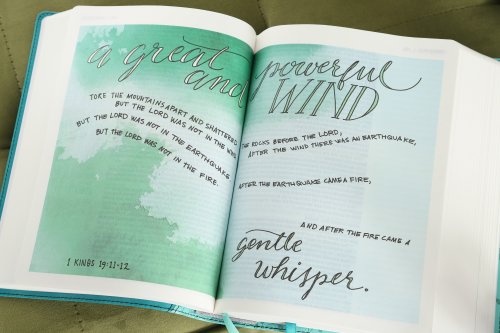 a great
and
powerful
WIND
TORE THE MOUNTAINS APART AND SHATTERED
THE ROCKS BEFORE THE LORD,
BUT THE LORD WAS NOT IN THE WIND
AFTER THE WIND THERE WAS AN EARTHQUAKE,
BUT THE LORD WAS NOT IN THE EARTHQUAKE
AFTER THE EARTHQUAKE CAME A FIRE,
BUT THE LORD WAS NOT IN THE FIRE.
AND AFTER THE FIRE CAME A
gentle
whisper.
1 KINGS 19:11-12